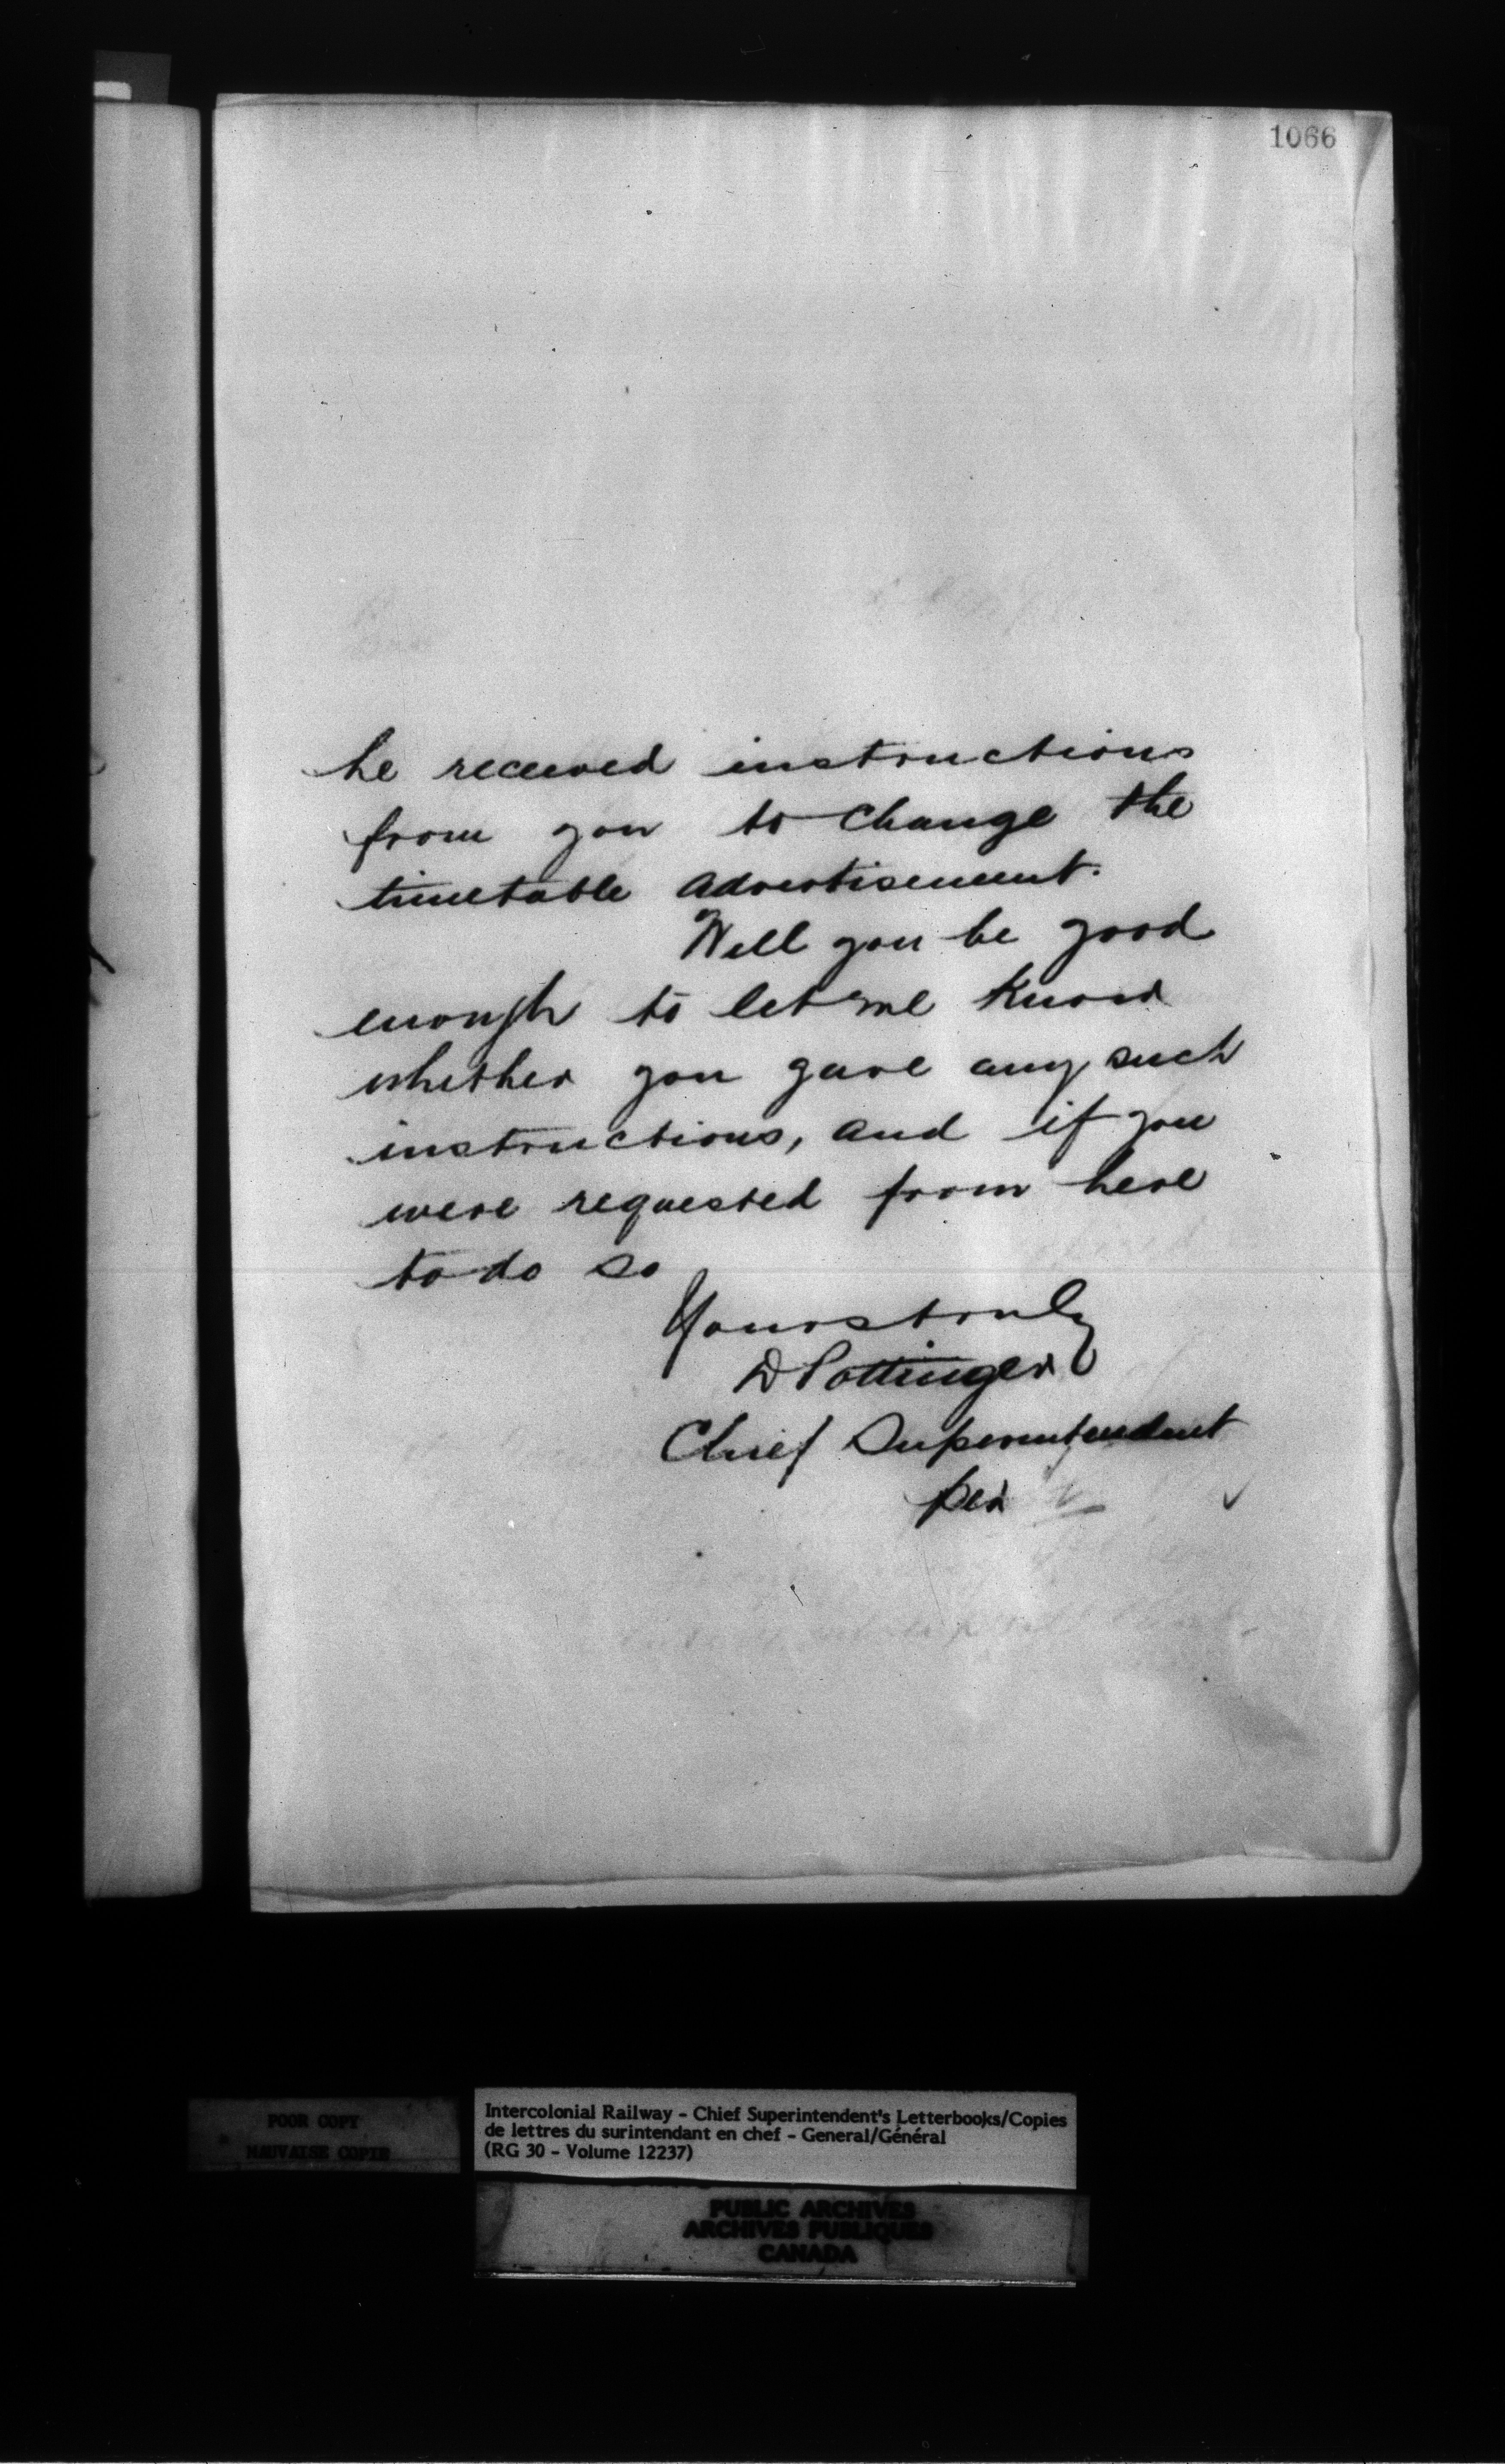 1066
he received instructions
from you to change the
timetable advertisement.
Will you be good
enough to let me know
whether you gave any such
instructions, and if you
were requested from here
to do so
Yours truly
D Pottinger
Chief Superintendent
per
POOR COPY
MAUVAISE COPIE
Intercolonial Railway - Chief Superintendent's Letterbooks/Copies
de lettres du surintendant en chef - General/Général
(RG 30 - Volume 12237)
PUBLIC ARCHIVES
ARCHIVES PUBLIQUES
CANADA